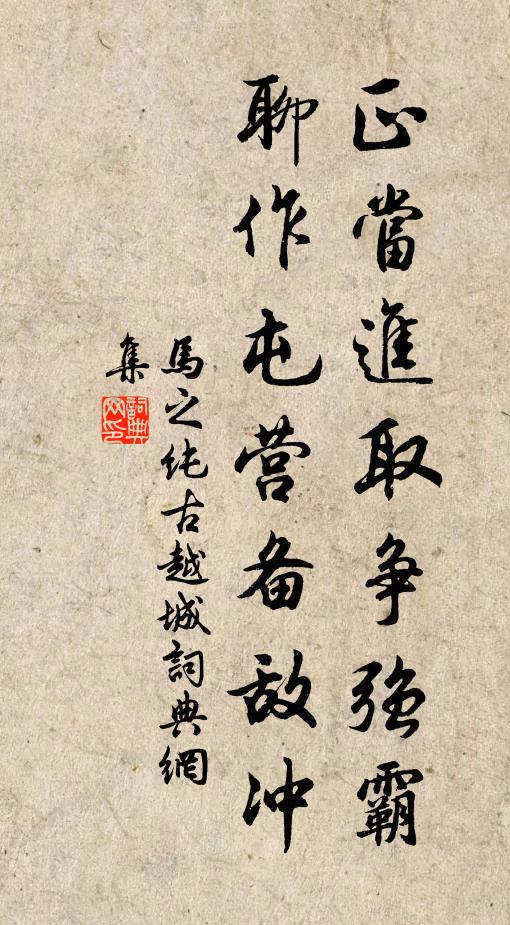 正當進取争強霸
聊作屯营备敌冲
馬之純古越城詞典網
集
詞典网印